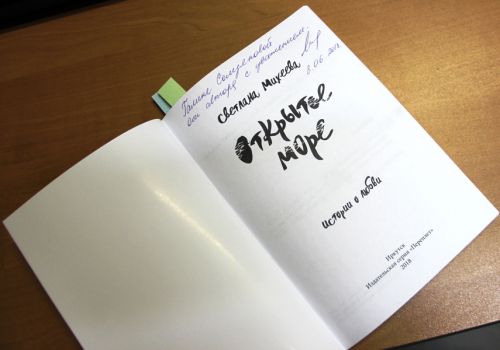 Галине Селезневой
от автора с уважением
8.06.2018
Светлана Михеева
Открытое
море
истории о любви
Иркутск
Издательская серия «Переплёт»
2018